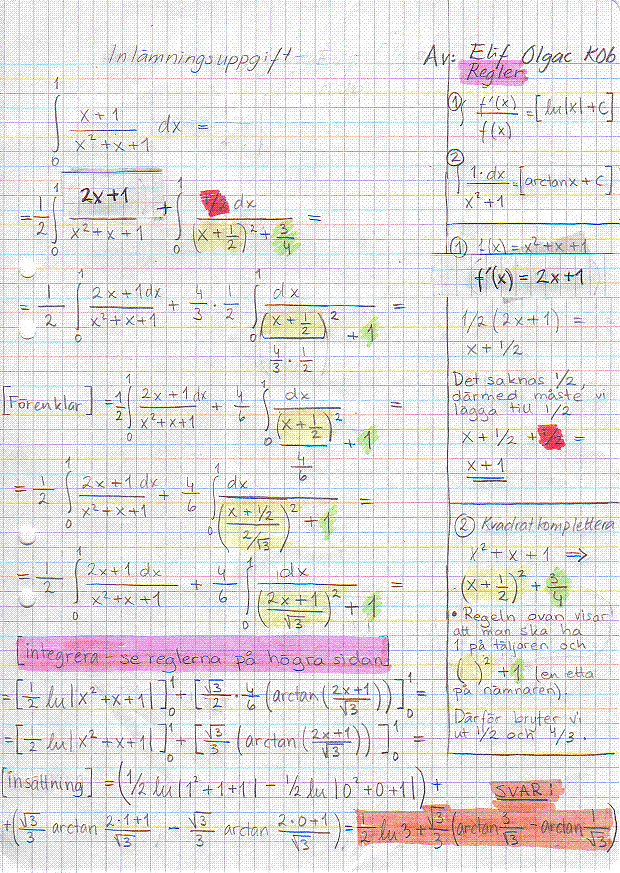 Inlämningsuppgift -
Av: Elif Olgac KOb
∫₀¹ (x+1)/(x²+x+1) dx =
= 1/2 ∫₀¹ (2x+1)/(x²+x+1) + ∫₀¹ (1/2 dx)/((x+1/2)²+3/4) =
= 1/2 ∫₀¹ (2x+1 dx)/(x²+x+1) + 4/3 · 1/2 ∫₀¹ dx/((x+1/2)²/(4/3 · 1/2) + 1) =
[Förenklar] = 1/2 ∫₀¹ (2x+1 dx)/(x²+x+1) + 4/6 ∫₀¹ dx/((x+1/2)²/(4/6) + 1) =
= 1/2 ∫₀¹ (2x+1 dx)/(x²+x+1) + 4/6 ∫₀¹ dx/(((x+1/2)/(2/√3))² + 1) =
= 1/2 ∫₀¹ (2x+1 dx)/(x²+x+1) + 4/6 ∫₀¹ dx/(((2x+1)/√3)² + 1) =
[integrera - se reglerna på högra sidan]
= [1/2 ln|x²+x+1|]₀¹ + [√3/2 · 4/6 (arctan((2x+1)/√3))]₀¹ =
= [1/2 ln|x²+x+1|]₀¹ + [√3/3 (arctan((2x+1)/√3))]₀¹ =
[insättning] = (1/2 ln|1²+1+1| - 1/2 ln|0²+0+1|) +
+ (√3/3 arctan (2·1+1)/√3 - √3/3 arctan (2·0+1)/√3) = 1/2 ln 3 + √3/3 (arctan 3/√3 - arctan 1/√3)
SVAR!
Regler
① ∫ f'(x)/f(x) = [ln|x| + C]
② ∫ 1·dx/(x²+1) = [arctanx + C]
① f(x) = x²+x+1
f'(x) = 2x+1
1/2 (2x+1) =
x + 1/2
Det saknas 1/2,
därmed måste vi
lägga till 1/2
x + 1/2 + 1/2 =
x+1
② Kvadratkomplettera
x² + x + 1 ⇒
(x + 1/2)² + 3/4
• Regeln ovan visar
att man ska ha
1 på täljaren och
( )² + 1 (en etta
på nämnaren).
Därför bryter vi
ut 1/2 och 4/3.